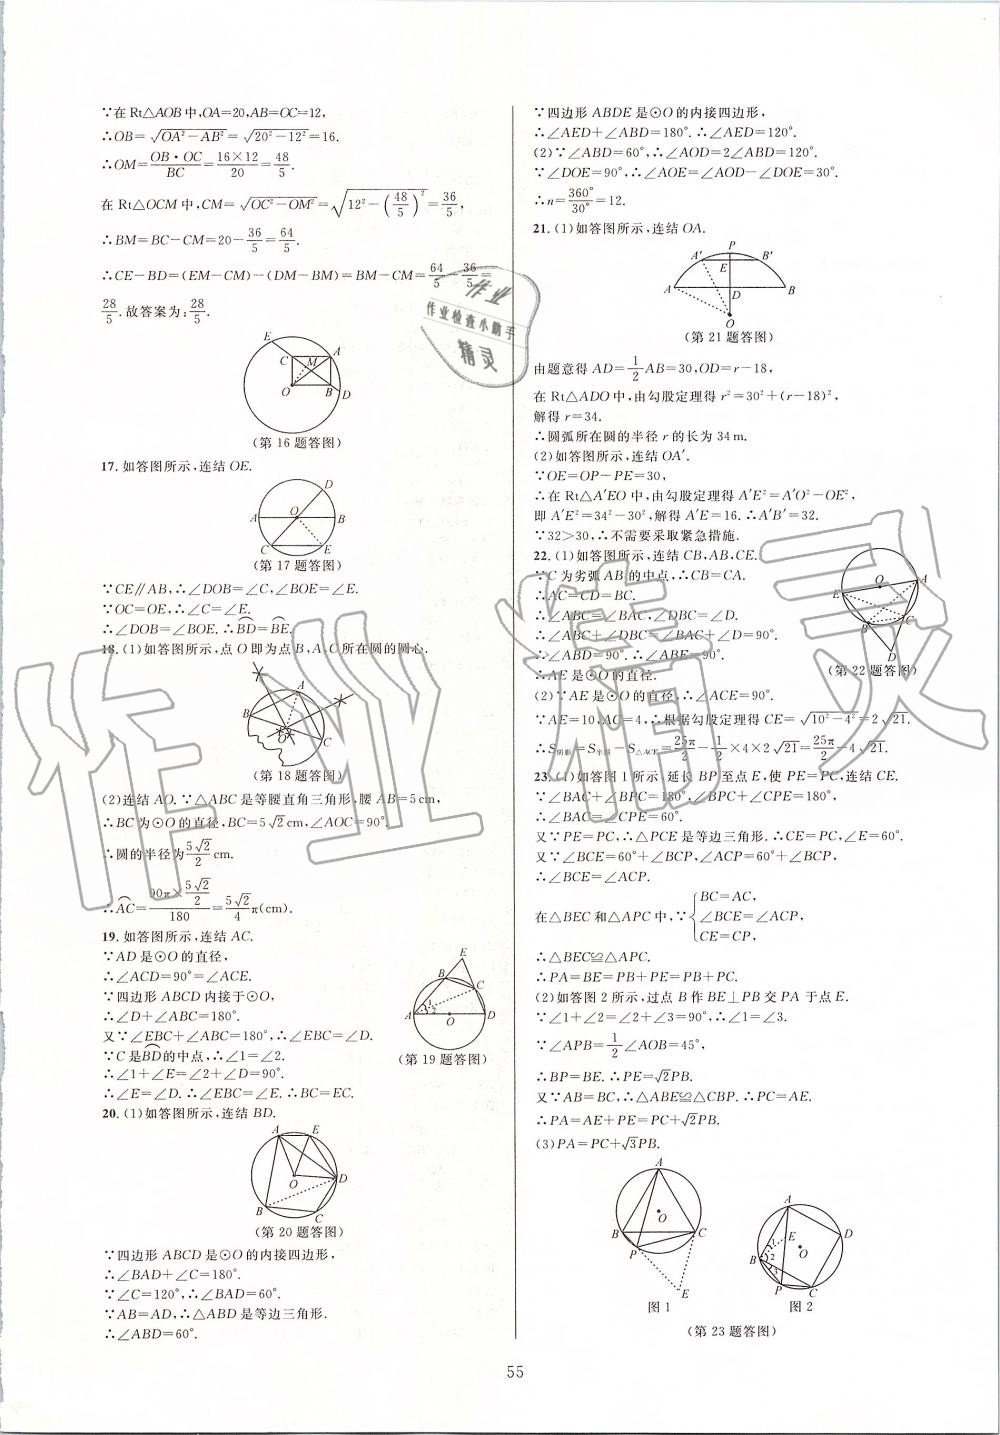 ∵在 Rt△AOB中,OA=20,AB=OC=12,
∴OB=√(OA²-AB²)=√(20²-12²)=16.
∴OM=OB·OC/BC=16×12/20=48/5.
在 Rt△OCM中,CM=√(OC²-OM²)=√(12²-(48/5)²)=36/5,
∴BM=BC-CM=20-36/5=64/5.
∴CE-BD=(EM-CM)-(DM-BM)=BM-CM=64/5-36/5=
28/5.故答案为:28/5.
E
C M A
O B D
(第16题答图)
17.如答图所示,连结OE.
D
A O B
C E
(第17题答图)
∵CE∥AB,∴∠DOB=∠C,∠BOE=∠E.
∵OC=OE,∴∠C=∠E.
∴∠DOB=∠BOE.∴BD⌢=BE⌢.
18.(1)如答图所示,点O即为点B,A,C所在圆的圆心.
A
B
O C
(第18题答图)
(2)连结AO.∵△ABC是等腰直角三角形,腰AB=5cm,
∴BC为⊙O的直径,BC=5√2cm,∠AOC=90°.
∴圆的半径为5√2/2cm.
∴AC⌢=(90π×5√2/2)/180=5√2/4π(cm).
19.如答图所示,连结AC.
∵AD是⊙O的直径,
∴∠ACD=90°=∠ACE.
∵四边形ABCD内接于⊙O,
∴∠D+∠ABC=180°.
又∵∠EBC+∠ABC=180°,∴∠EBC=∠D.
∵C是BD⌢的中点,∴∠1=∠2.
∴∠1+∠E=∠2+∠D=90°.
∴∠E=∠D.∴∠EBC=∠E.∴BC=EC.
E
B
C
1
2
A O D
(第19题答图)
20.(1)如答图所示,连结BD.
A E
O D
B C
(第20题答图)
∵四边形ABCD是⊙O的内接四边形,
∴∠BAD+∠C=180°.
∵∠C=120°,∴∠BAD=60°.
∵AB=AD,∴△ABD是等边三角形.
∴∠ABD=60°.
∵四边形ABDE是⊙O的内接四边形,
∴∠AED+∠ABD=180°.∴∠AED=120°.
(2)∵∠ABD=60°,∴∠AOD=2∠ABD=120°.
∵∠DOE=90°,∴∠AOE=∠AOD-∠DOE=30°.
∴n=360°/30°=12.
21.(1)如答图所示,连结OA.
P
A′ E B′
A D B
O
(第21题答图)
由题意得AD=1/2AB=30,OD=r-18,
在Rt△ADO中,由勾股定理得r²=30²+(r-18)²,
解得r=34.
∴圆弧所在圆的半径r的长为34m.
(2)如答图所示,连结OA′.
∵OE=OP-PE=30,
∴在Rt△A′EO中,由勾股定理得A′E²=A′O²-OE²,
即A′E²=34²-30²,解得A′E=16.∴A′B′=32.
∵32>30,∴不需要采取紧急措施.
22.(1)如答图所示,连结CB,AB,CE.
∵C为劣弧AB的中点,∴CB=CA.
∴AC=CD=BC.
∴∠ABC=∠BAC,∠DBC=∠D.
∴∠ABC+∠DBC=∠BAC+∠D=90°.
∴∠ABD=90°.∴∠ABE=90°.
∴AE是⊙O的直径.
(2)∵AE是⊙O的直径,∴∠ACE=90°.
∵AE=10,AC=4,∴根据勾股定理得CE=√(10²-4²)=2√21.
∴S阴影=S半圆-S△ACE=25π/2-1/2×4×2√21=25π/2-4√21.
O A
E
B C
D
(第22题答图)
23.(1)如答图1所示,延长BP至点E,使PE=PC,连结CE.
∵∠BAC+∠BPC=180°,∠BPC+∠CPE=180°,
∴∠BAC=∠CPE=60°.
又∵PE=PC,∴△PCE是等边三角形.∴CE=PC,∠E=60°.
又∵∠BCE=60°+∠BCP,∠ACP=60°+∠BCP,
∴∠BCE=∠ACP.
在△BEC和△APC中,∵{BC=AC,
∠BCE=∠ACP,
CE=CP,
∴△BEC≌△APC.
∴PA=BE=PB+PE=PB+PC.
(2)如答图2所示,过点B作BE⊥PB交PA于点E.
∵∠1+∠2=∠2+∠3=90°,∴∠1=∠3.
∵∠APB=1/2∠AOB=45°,
∴BP=BE.∴PE=√2PB.
又∵AB=BC,∴△ABE≌△CBP.∴PC=AE.
∴PA=AE+PE=PC+√2PB.
(3)PA=PC+√3PB.
A
O
B C
P
E
图1
A
D
E
1
2
3
O
B
P C
图2
(第23题答图)
55
作业
作业检查小助手
精灵
作业精灵